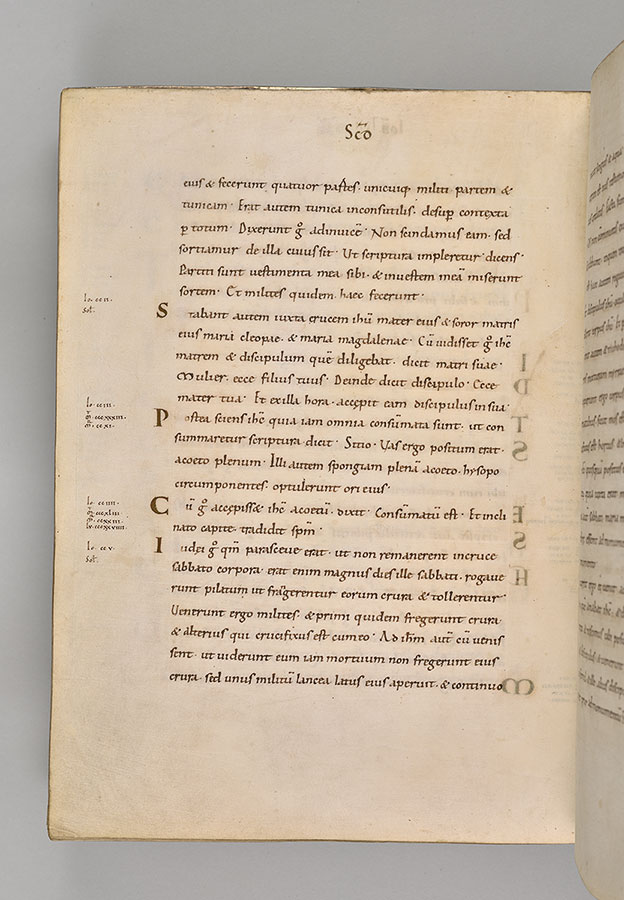 Scdō
eius & fecerunt quatuor partes. unicuiq; militi partem &
tunicam. Erat autem tunica inconsutilis. desup contexta
p totum. Dixerunt g̊ adinuicē. Non scindamus eam. sed
sortiamur de illa cuius sit. Ut scriptura impleretur dicens.
Partiti sunt uestimenta mea sibi. & inuestem meā miserunt
sortem. Et milites quidem haec fecerunt.
Io. cc ii. Sol.
Stabant autem iuxta crucem ihū mater eius & soror matris
eius maria cleopae. & maria magdalenae. Cū uidisset g̊ ihc̄
matrem & discipulum quē diligebat. dicit matri suae.
Mulier. ecce filius tuus. Deinde dicit discipulo. Ecce
mater tua. Et ex illa hora. accepit eam discipulus in sua.
Io. cc iii.
Postea sciens ihc̄ quia iam omnia consūmata sunt. ut con
summaretur scriptura. dicit. Sitio. Uas ergo positum erat.
acoeto plenum. Illi autem spongiam plenā acoeto. hysopo
circumponentes. optulerunt ori eius.
Io. cc iiii.
Cū g̊ accepisset ihc̄ acoetū. dixit. Consūmatū est. Et incli
nato capite. tradidit spm̄.
Io. cc v. Sol.
Iudei g̊ qm̄ parasceue erat. ut non remanerent incruce
sabbato corpora. erat enim magnus dies ille sabbati. rogaue
runt pilatum ut frāgerentur eorum crura & tollerentur.
Uenerunt ergo milites. & primi quidem fregerunt crura
& alterius qui crucifixus est cumeo. Ad ihm̄ autē cū uenis
sent. ut uiderunt eum iam mortuum non fregerunt eius
crura. sed unus militū lancea latus eius aperuit. & continuo